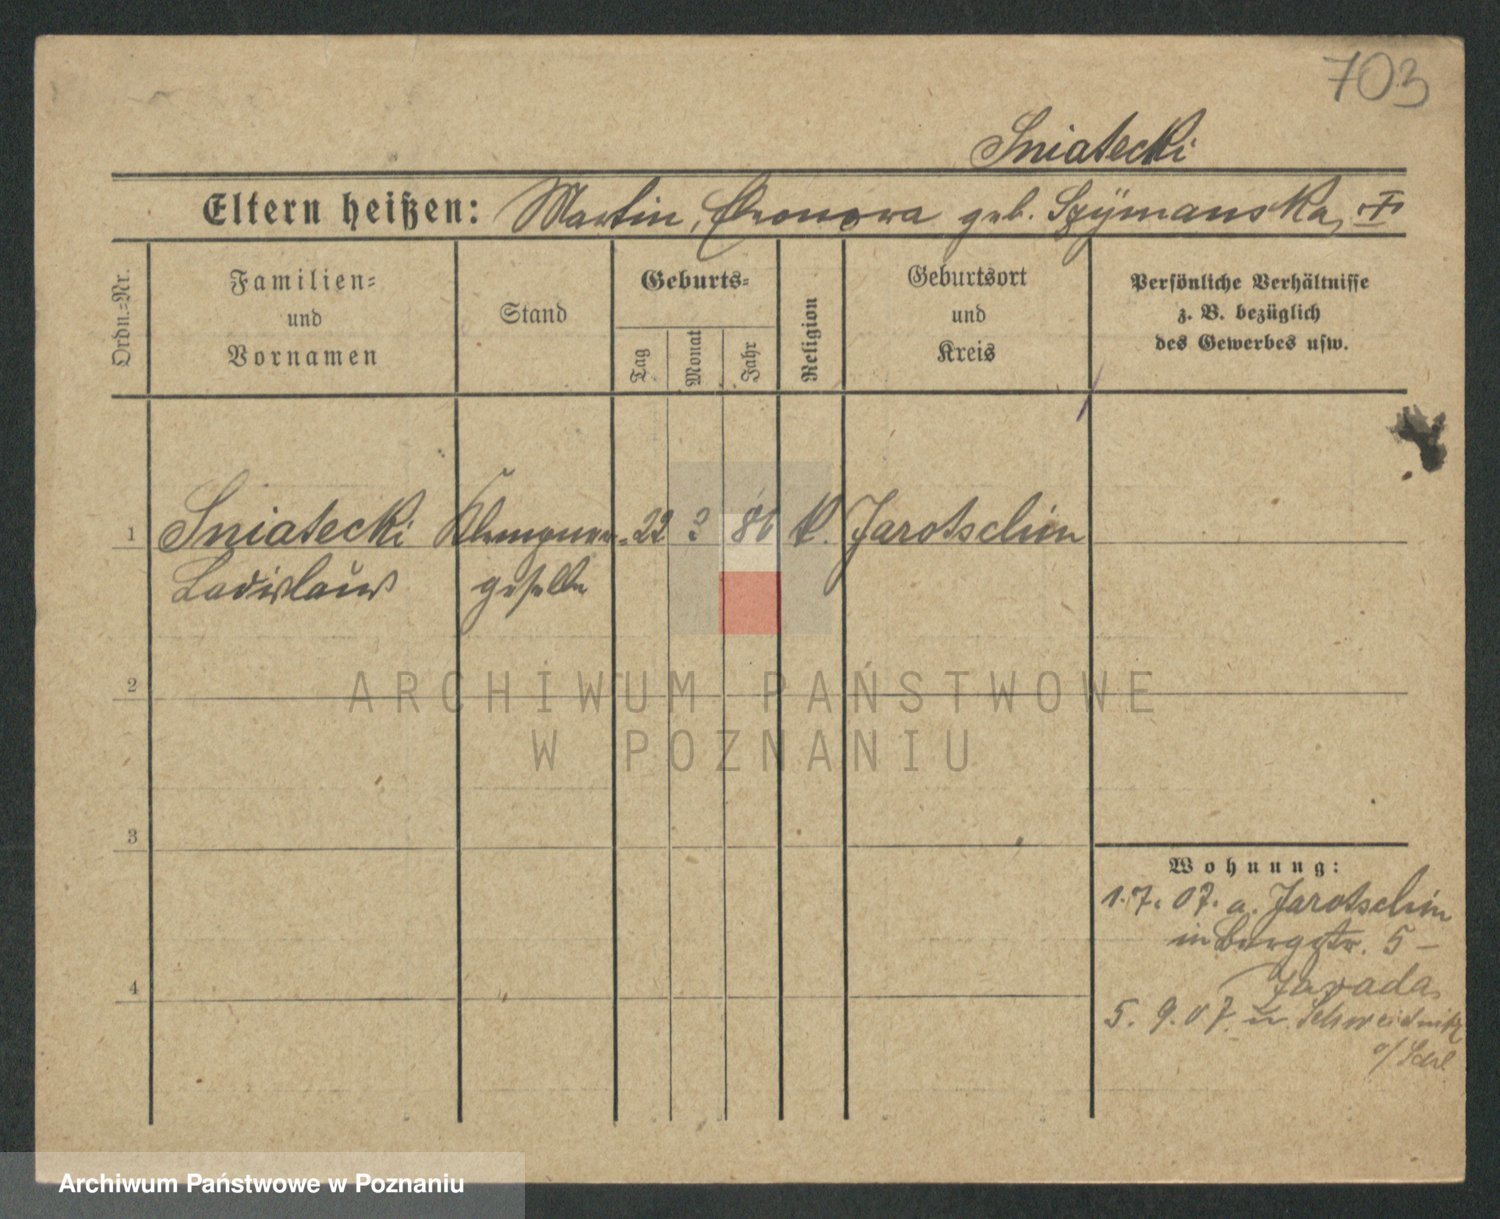 703
Sniatecki
Eltern heißen: Martin, Eleonora geb. Szÿmanska
Ordn.-Nr.
Familien-
und
Vornamen
Stand
Geburts-
Tag
Monat
Jahr
Religion
Geburtsort
und
Kreis
Persönliche Verhältnisse
z. B. bezüglich
des Gewerbes usw.
1 Sniatecki Klempner- 22 3 86 k. Jarotschin
Ladislaus geselle
2
ARCHIWUM PAŃSTWOWE
W POZNANIU
3
Wohnung:
1.7.07. a. Jarotschin
in Bergstr. 5 -
4
5. 9. 07. n. Schweidnitz
Archiwum Państwowe w Poznaniu